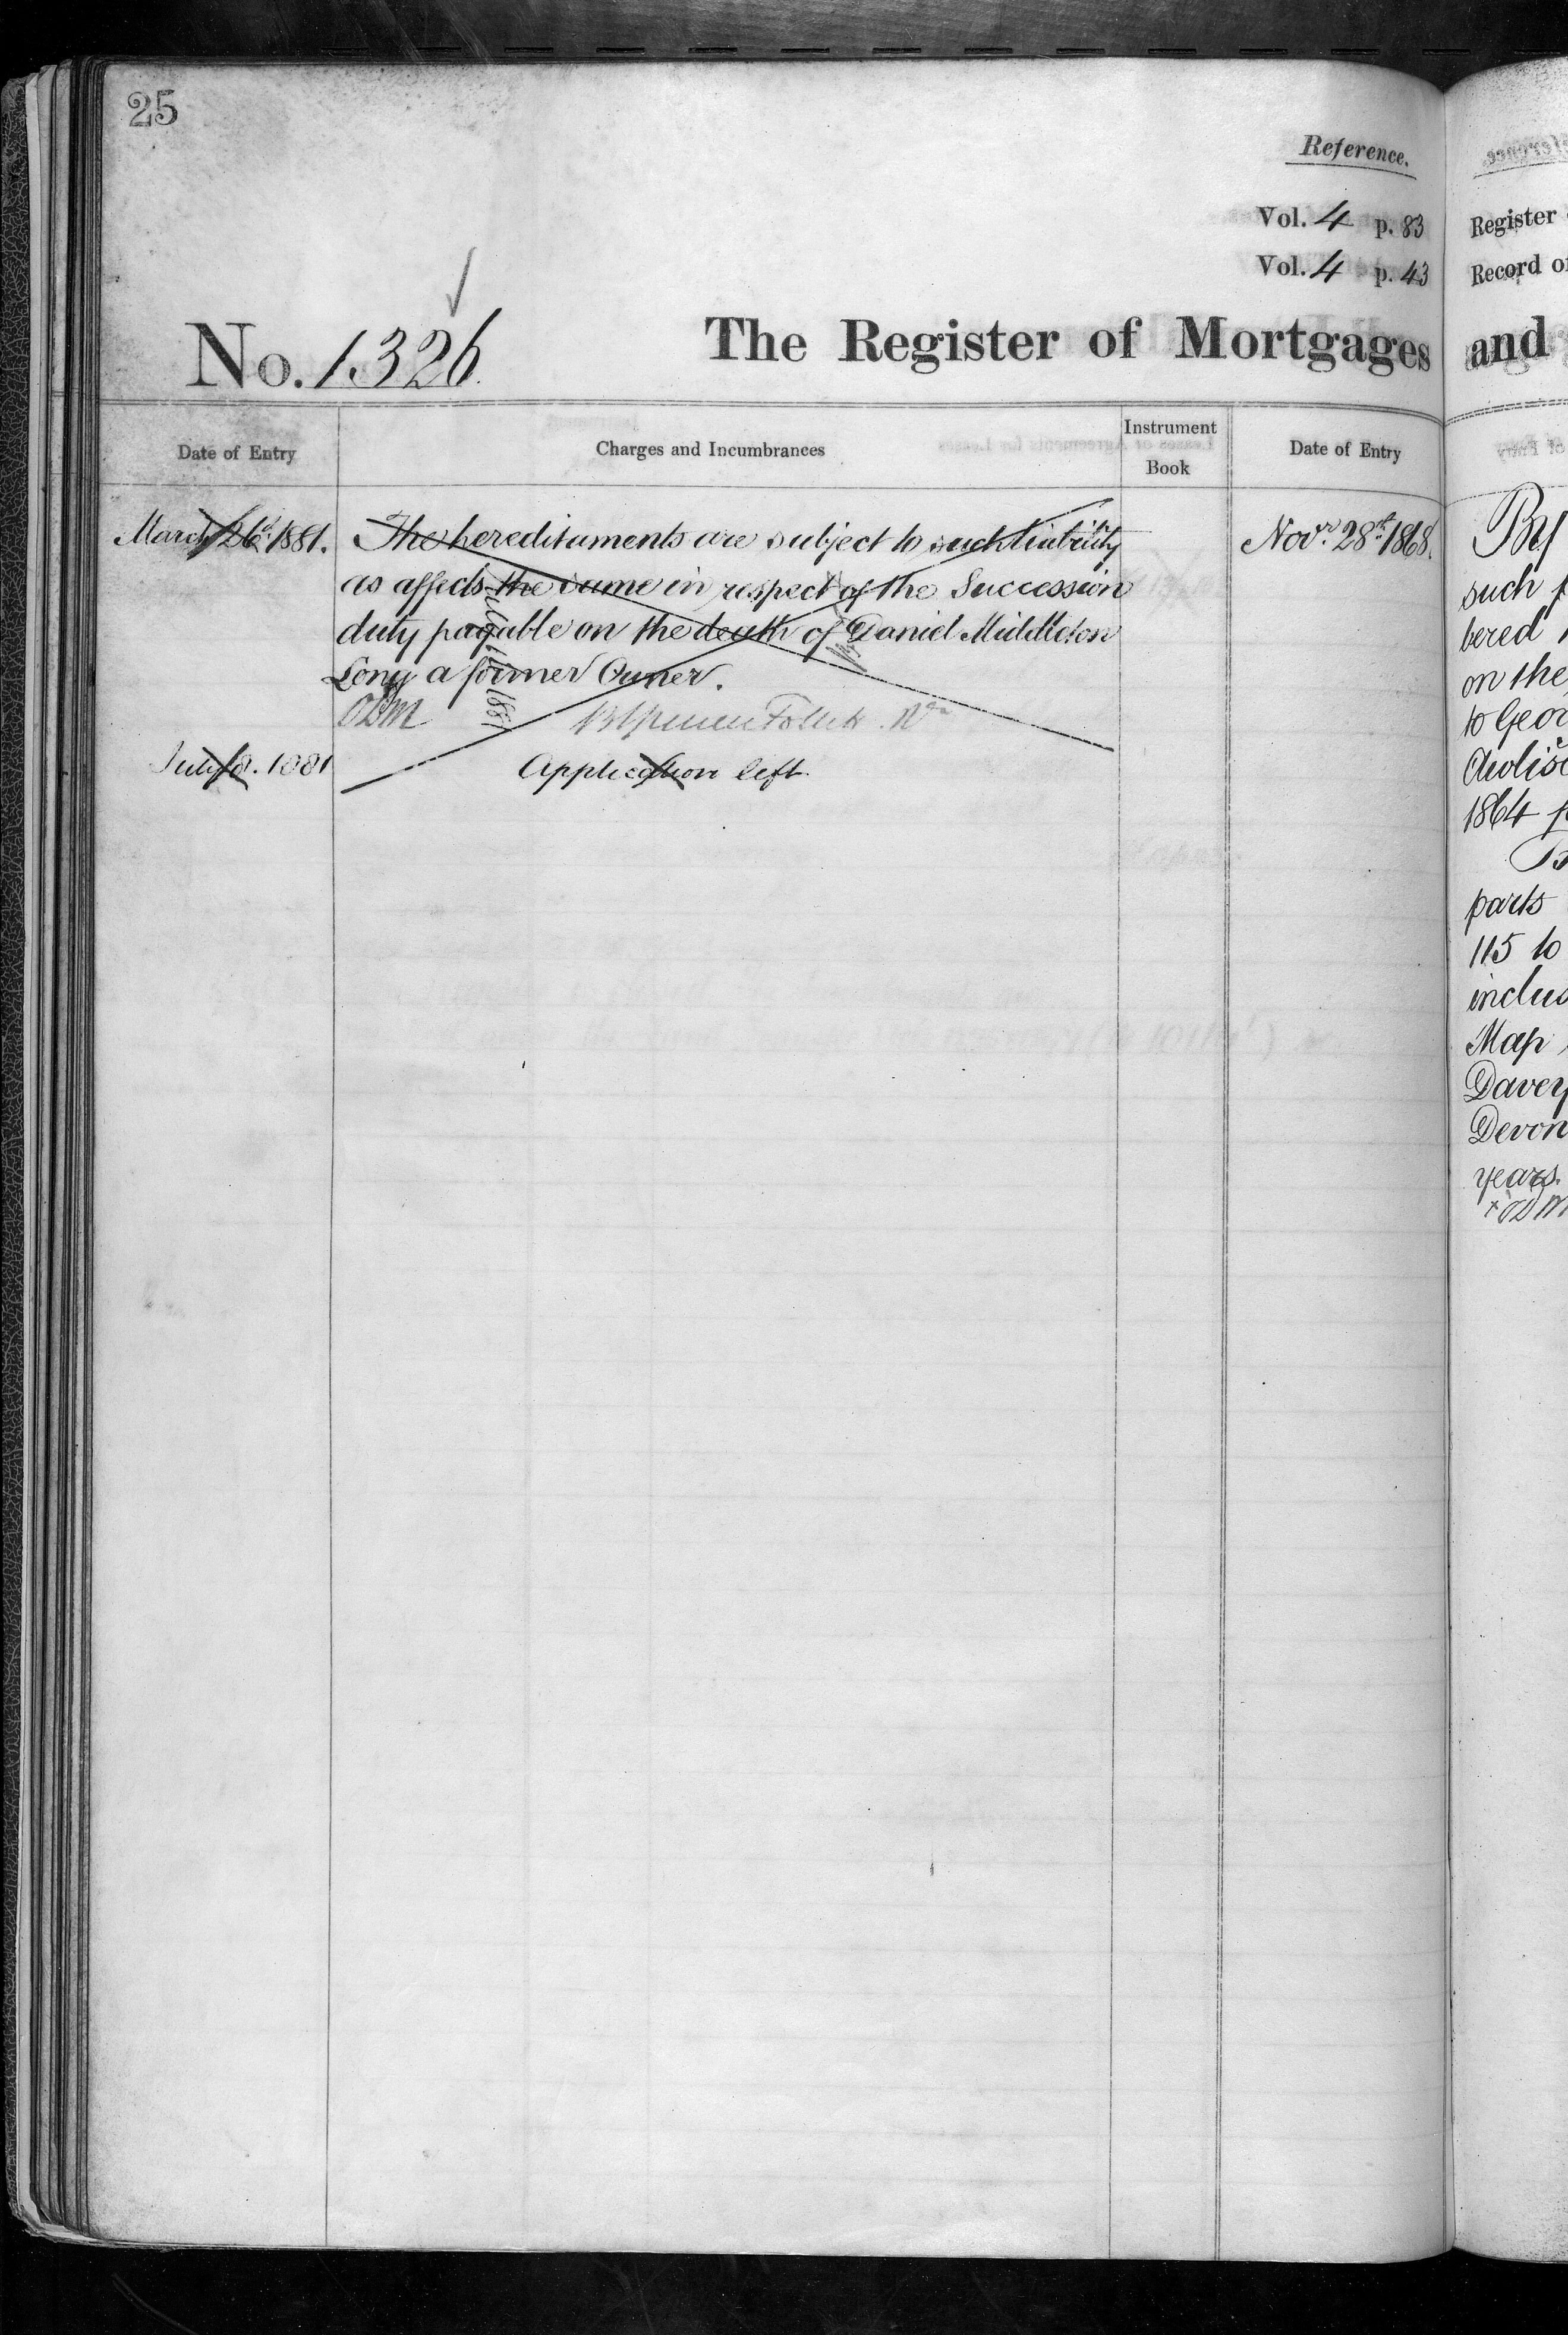 25
Reference.
Vol. 4 p. 83
Vol. 4 p. 43
No. 1326
The Register of Mortgages
Date of Entry
Charges and Incumbrances
Instrument Book
Date of Entry
March 26th 1881.
The hereditaments are subject to such liability
as affects the same in respect of the Succession
duty payable on the death of Daniel Middleton
Long a former Owner.
1881
July 8. 1881
Application left.
Novr. 28th 1868.
Register
Record of
and
By
such
bered
on the
to Geor
1864
parts
115 to
inclus
Map
Davey
Devon
years.